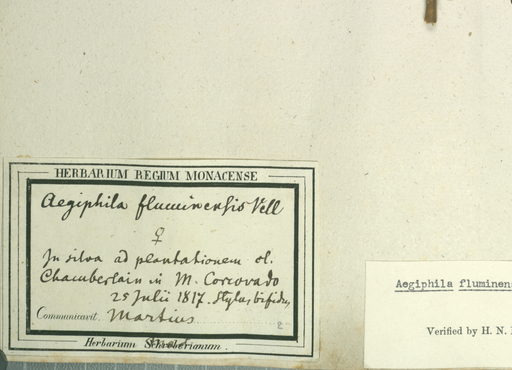 HERBARIUM REGIUM MONACENSE
Aegiphila fluminensis Vell
♀
In silva ad plantationem ol.
Chamberlain in M. Corcovado
25 Julii 1817. Stylus bifidus,
Communicavit. Martius
Herbarium Schreberianum.
Aegiphila fluminens
Verified by H. N.